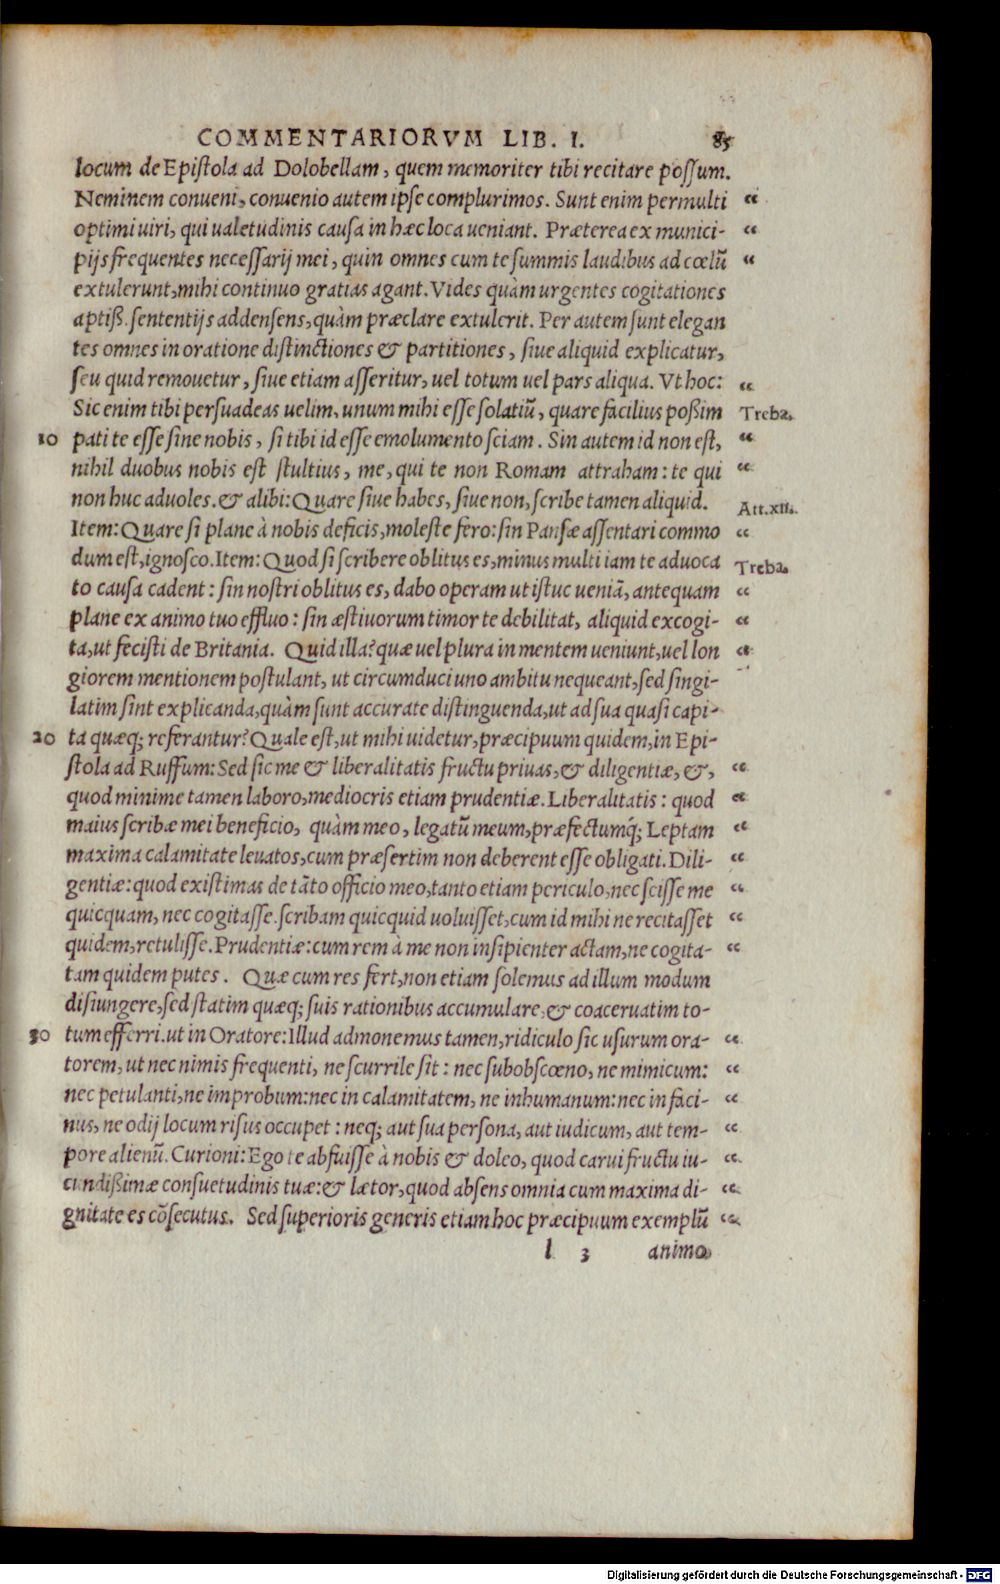 COMMENTARIORVM LIB. I. 85
locum de Epistola ad Dolobellam, quem memoriter tibi recitare possum.
Neminem conueni, conuenio autem ipse complurimos. Sunt enim permulti “
optimi uiri, qui ualetudinis causa in hæc loca ueniant. Præterea ex munici- “
pijs frequentes necessarij mei, quin omnes cum te summis laudibus ad cœlū “
extulerunt, mihi continuo gratias agant. Vides quàm urgentes cogitationes
aptiß. sententijs addensens, quàm præclare extulerit. Per autem sunt elegan
tes omnes in oratione distinctiones & partitiones, siue aliquid explicatur,
seu quid remouetur, siue etiam asseritur, uel totum uel pars aliqua. Vt hoc: “
Sic enim tibi persuadeas uelim, unum mihi esse solatiū, quare facilius poßim Treba.
10 pati te esse sine nobis, si tibi id esse emolumento sciam. Sin autem id non est, “
nihil duobus nobis est stultius, me, qui te non Romam attraham: te qui “
non huc aduoles. & alibi: Quare siue habes, siue non, scribe tamen aliquid. Att.xii.
Item: Quare si plane à nobis deficis, moleste fero: sin Pansæ assentari commo “
dum est, ignosco. Item: Quod si scribere oblitus es, minus multi iam te aduoca Treba.
to causa cadent: sin nostri oblitus es, dabo operam ut istuc ueniā, antequam “
plane ex animo tuo effluo: sin æstiuorum timor te debilitat, aliquid excogi- “
ta, ut fecisti de Britania. Quid illa? quæ uel plura in mentem ueniunt, uel lon “
giorem mentionem postulant, ut circumduci uno ambitu nequeant, sed singi-
latim sint explicanda, quàm sunt accurate distinguenda, ut ad sua quasi capi-
20 ta quæq; referantur? Quale est, ut mihi uidetur, præcipuum quidem, in Epi-
stola ad Ruffum: Sed sic me & liberalitatis fructu priuas, & diligentiæ, &, “
quod minime tamen laboro, mediocris etiam prudentiæ. Liberalitatis: quod “
maius scribæ mei beneficio, quàm meo, legatū meum, præfectumq́; Leptam “
maxima calamitate leuatos, cum præsertim non deberent esse obligati. Dili- “
gentiæ: quod existimas de tāto officio meo, tanto etiam periculo, nec scisse me “
quicquam, nec cogitasse. scribam quicquid uoluisset, cum id mihi ne recitasset “
quidem, retulisse. Prudentiæ: cum rem à me non insipienter actam, ne cogita- “
tam quidem putes. Quæ cum res fert, non etiam solemus ad illum modum
disiungere, sed statim quæq; suis rationibus accumulare, & coaceruatim to-
30 tum efferri. ut in Oratore: Illud admonemus tamen, ridiculo sic usurum ora- “
torem, ut nec nimis frequenti, ne scurrile sit: nec subobscœno, ne mimicum: “
nec petulanti, ne improbum: nec in calamitatem, ne inhumanum: nec in faci- “
nus, ne odij locum risus occupet: neq; aut sua persona, aut iudicum, aut tem- “
pore alienū. Curioni: Ego te abfuisse à nobis & doleo, quod carui fructu iu- “
cundißimæ consuetudinis tuæ: & lætor, quod absens omnia cum maxima di- “
gnitate es cōsecutus. Sed superioris generis etiam hoc præcipuum exemplū “
l 3 animo
Digitalisierung gefördert durch die Deutsche Forschungsgemeinschaft - DFG